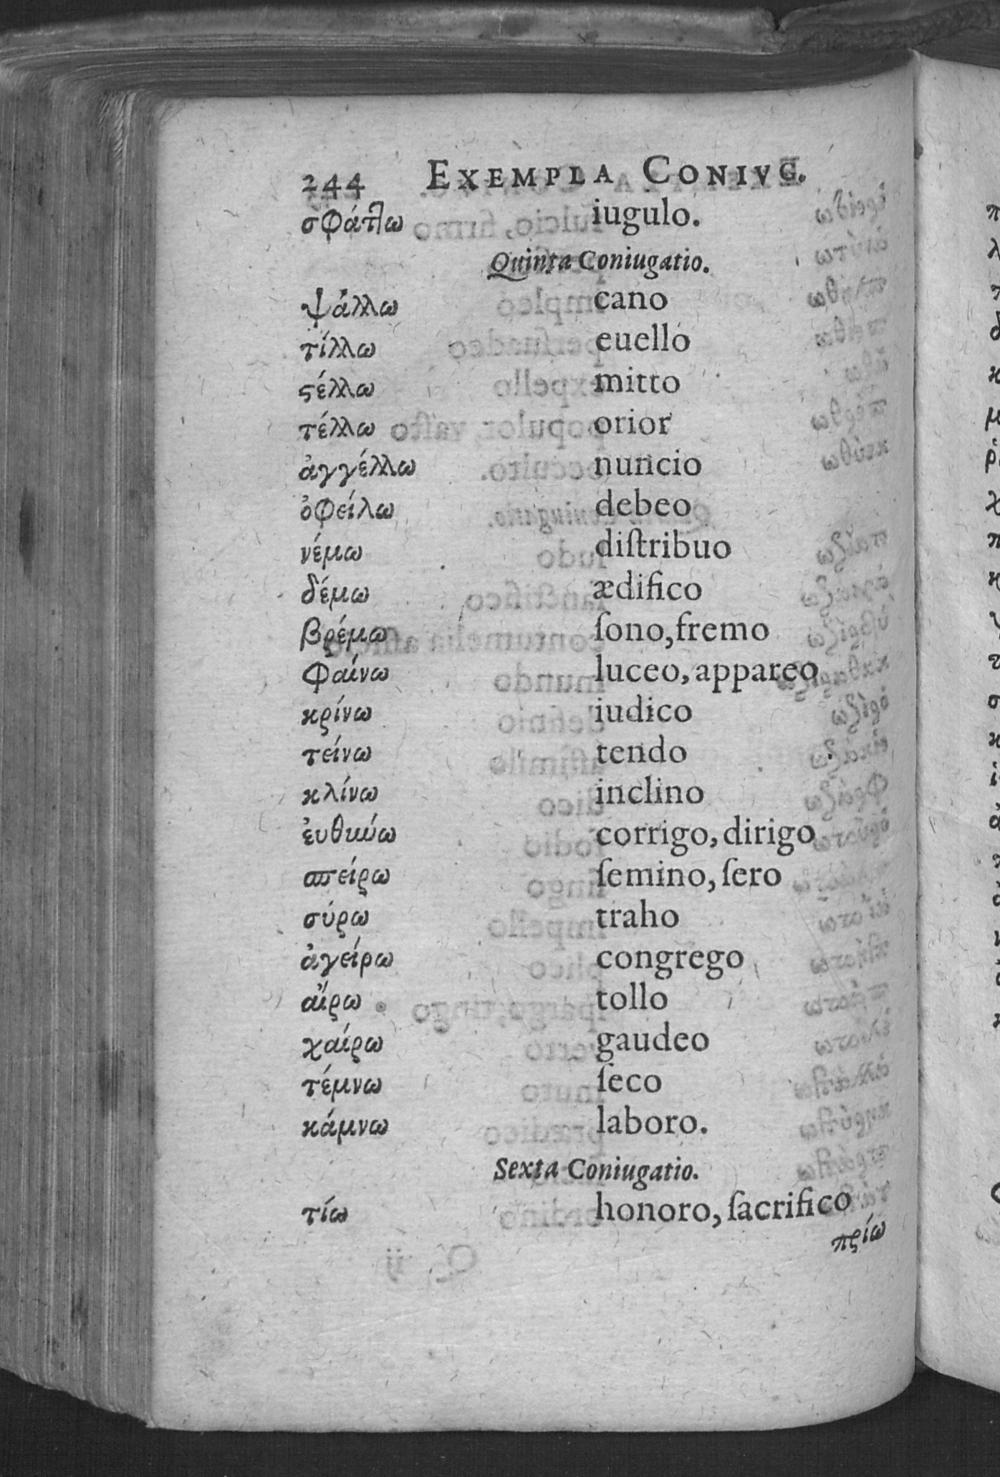 244 EXEMPLA CONIVG.
σφάτ7ω iugulo.
Quinta Coniugatio.
ψάλλω cano
τίλλω euello
ςέλλω mitto
τέλλω orior
ἀγγέλλω nuncio
ὀφείλω debeo
νέμω diſtribuo
δέμω ædifico
βρέμω ſono, fremo
φαίνω luceo, appareo
κρίνω iudico
τείνω tendo
κλίνω inclino
ἐυθιιύω corrigo, dirigo
σπείρω ſemino, ſero
σύρω traho
ἀγείρω congrego
αἴρω tollo
χαίρω gaudeo
τέμνω ſeco
κάμνω laboro.
Sexta Coniugatio.
τίω honoro, ſacrifico
πρίω